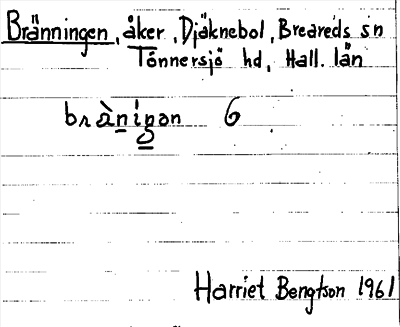 Bränningen, åker, Djäknebol, Breareds sn
Tönnersjö hd, Hall. län
bràninan 6
Harriet Bengtson 1961